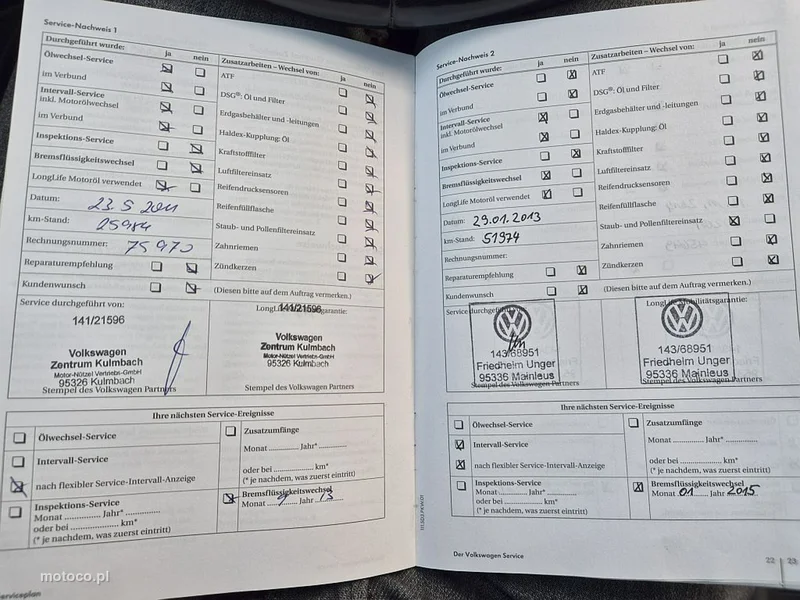 Service-Nachweis 1
Durchgeführt wurde: ja nein
Ölwechsel-Service
im Verbund
Intervall-Service
inkl. Motorölwechsel
im Verbund
Inspektions-Service
Bremsflüssigkeitswechsel
LongLife Motoröl verwendet
Datum: 23.5 2011
km-Stand: 25984
Rechnungsnummer: 75970
Reparaturempfehlung
Kundenwunsch
Zusatzarbeiten – Wechsel von: ja nein
ATF
DSG®: Öl und Filter
Erdgasbehälter und -leitungen
Haldex-Kupplung: Öl
Kraftstofffilter
Luftfiltereinsatz
Reifendrucksensoren
Reifenfüllflasche
Staub- und Pollenfiltereinsatz
Zahnriemen
Zündkerzen
(Diesen bitte auf dem Auftrag vermerken.)
Service durchgeführt von:
141/21596
Volkswagen
Zentrum Kulmbach
Motor-Nützel Vertriebs-GmbH
95326 Kulmbach
Stempel des Volkswagen Partners
141/21596
Volkswagen
Zentrum Kulmbach
Motor-Nützel Vertriebs-GmbH
95326 Kulmbach
Stempel des Volkswagen Partners
Ihre nächsten Service-Ereignisse
Ölwechsel-Service
Intervall-Service
nach flexibler Service-Intervall-Anzeige
Inspektions-Service
Monat Jahr*
oder bei km*
(* je nachdem, was zuerst eintritt)
Zusatzumfänge
Monat Jahr*
oder bei km*
(* je nachdem, was zuerst eintritt)
Bremsflüssigkeitswechsel
Monat 9 Jahr 13
motoco.pl
Service-Nachweis 2
Durchgeführt wurde: ja nein
Ölwechsel-Service
im Verbund
Intervall-Service
inkl. Motorölwechsel
im Verbund
Inspektions-Service
Bremsflüssigkeitswechsel
LongLife Motoröl verwendet
Datum: 29.01.2013
km-Stand: 51974
Rechnungsnummer:
Reparaturempfehlung
Kundenwunsch
Zusatzarbeiten – Wechsel von: ja nein
ATF
DSG®: Öl und Filter
Erdgasbehälter und -leitungen
Haldex-Kupplung: Öl
Kraftstofffilter
Luftfiltereinsatz
Reifendrucksensoren
Reifenfüllflasche
Staub- und Pollenfiltereinsatz
Zahnriemen
Zündkerzen
(Diesen bitte auf dem Auftrag vermerken.)
Service durchgeführt von:
143/68951
Friedhelm Unger
95336 Mainleus
Stempel des Volkswagen Partners
LongLife Mobilitätsgarantie:
143/68951
Friedhelm Unger
95336 Mainleus
Stempel des Volkswagen Partners
Ihre nächsten Service-Ereignisse
Ölwechsel-Service
Intervall-Service
nach flexibler Service-Intervall-Anzeige
Inspektions-Service
Monat Jahr*
oder bei km*
(* je nachdem, was zuerst eintritt)
Zusatzumfänge
Monat Jahr*
oder bei km*
(* je nachdem, was zuerst eintritt)
Bremsflüssigkeitswechsel
Monat 01 Jahr 2015
Der Volkswagen Service
22 23